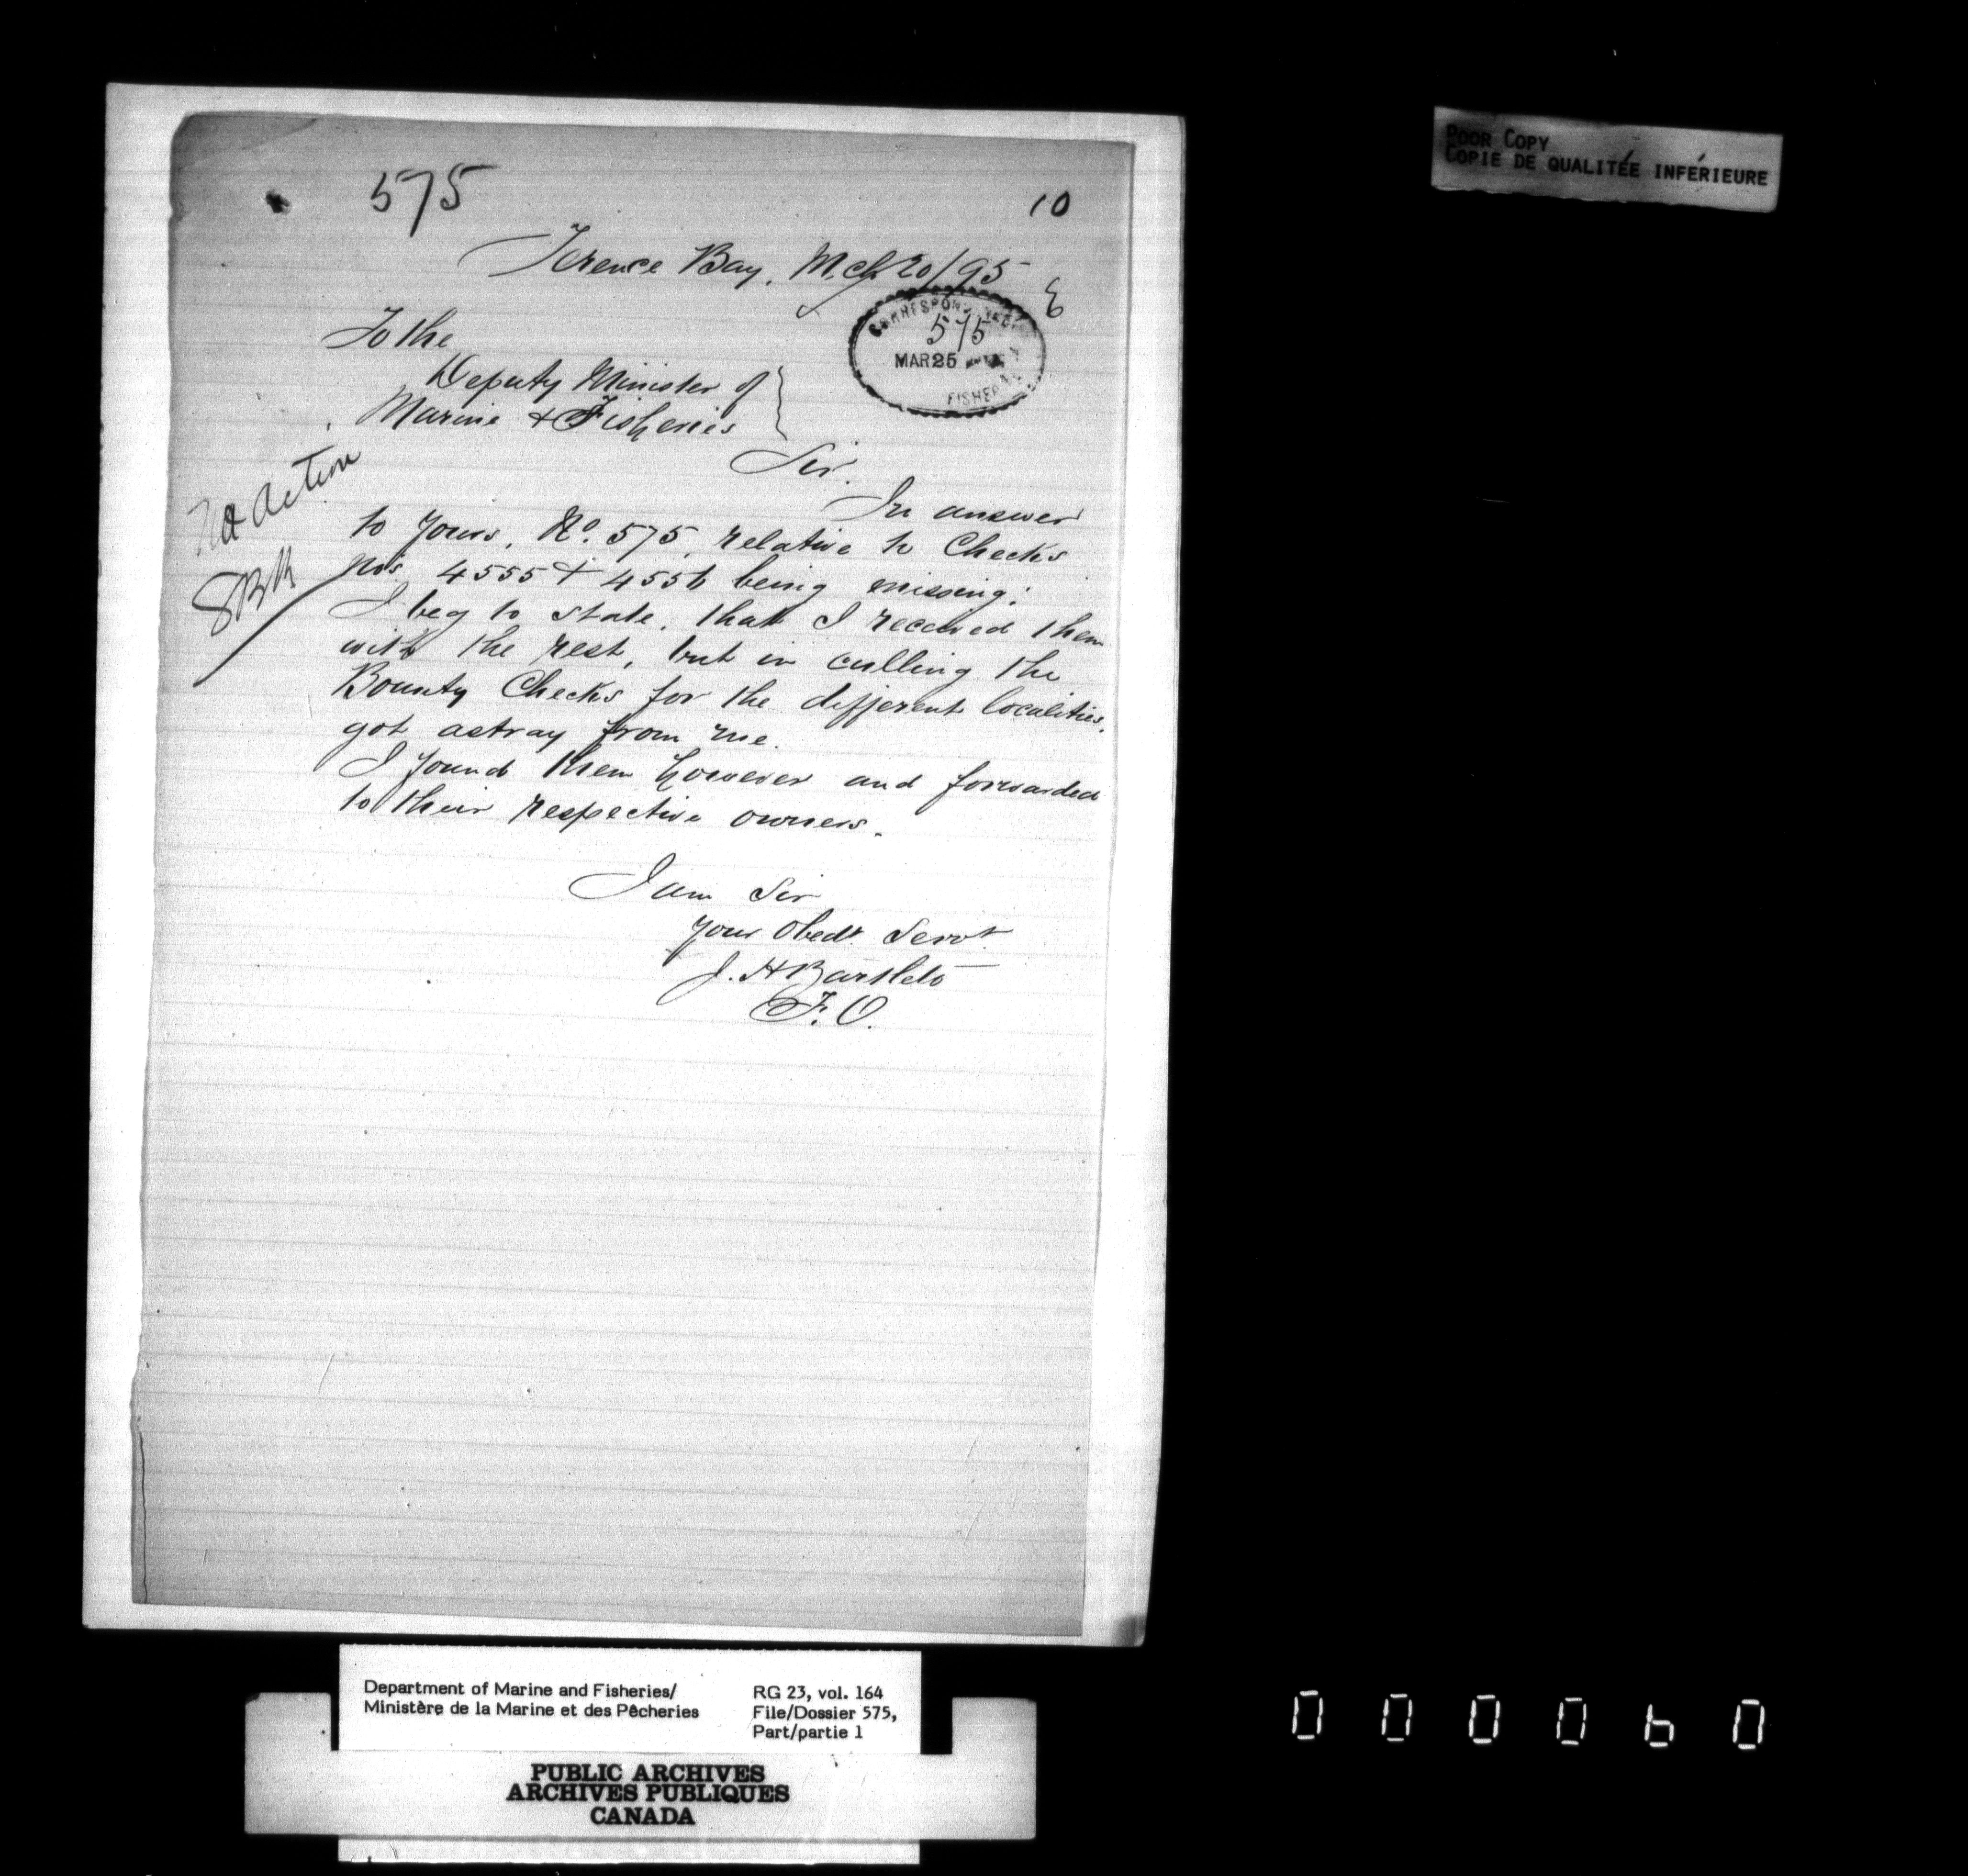 575
10
Terence Bay. Mch 20/95
E
CORRESPON
575
MAR 25
FISHER
To the
Deputy Minister of
Marine & Fisheries
Sir.
No action
In answer
to yours, No. 575, relative to Checks
nos 4555 & 4556 being missing:
I beg to state, that I received them
with the rest, but in culling the
Bounty Checks for the different localities,
got astray from me.
I found them however and forwarded
to their respective owners.
I am Sir
your Obedt Servt
J. H Bartlett
F. O.
POOR COPY
COPIE DE QUALITÉE INFÉRIEURE
Department of Marine and Fisheries/
Ministère de la Marine et des Pêcheries
RG 23, vol. 164
File/Dossier 575,
Part/partie 1
PUBLIC ARCHIVES
ARCHIVES PUBLIQUES
CANADA
000060